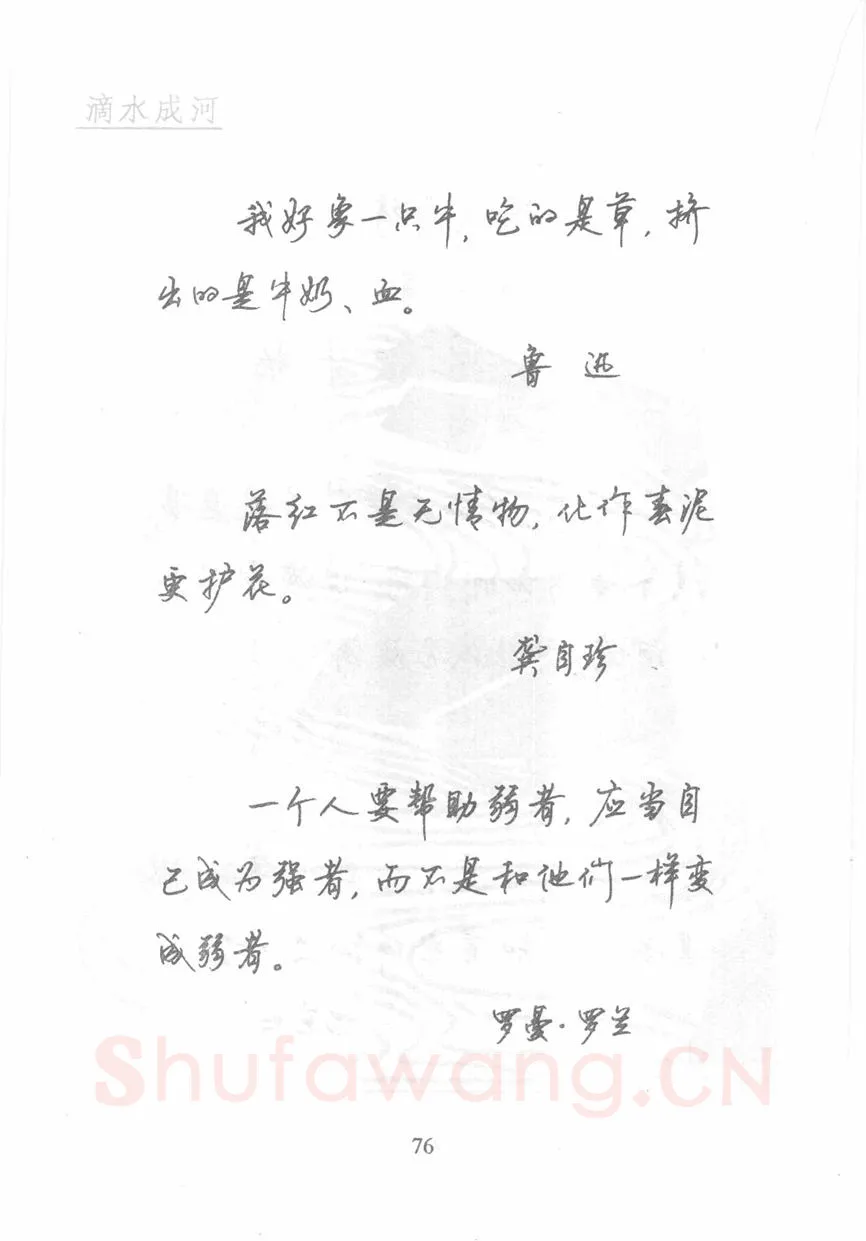 滴水成河
我好象一只牛，吃的是草，挤
出的是牛奶、血。
鲁 迅
落红不是无情物，化作春泥
更护花。
龚自珍
一个人要帮助弱者，应当自
己成为强者，而不是和他们一样变
成弱者。
罗曼·罗兰
Shufawang.CN
76